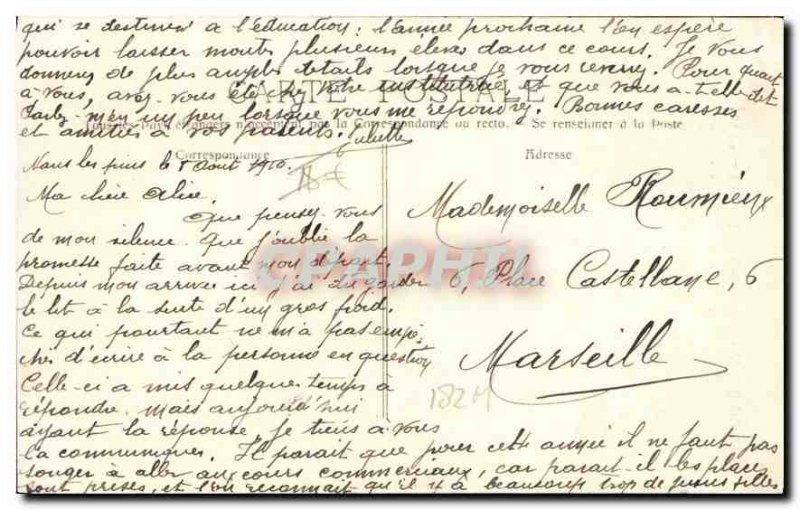 qui se destinent à l'éducation; l'année prochaine l'on espère
pouvoir laisser monter plusieurs élèves dans ce cours. Je vous
donnerez de plus amples détails lorsque je vous verrez. Pour quant
à vous, avez-vous été chez votre institutrice, et que vous a-t-elle dit
Parlez-m'en un peu lorsque vous me répondrez. Bonnes caresses
et amitiés à vos parents. Juliette
CARTE POSTALE
Tous les Pays étrangers n'acceptent pas la Correspondance au recto. Se renseigner à la Poste
Correspondance
Adresse
les pins le 5 Août 1910.
18€
Ma chère Alice.
Que pensez-vous
de mon silence. Que j'oublie la
promesse faite avant mon départ.
Depuis mon arrivée ici j'ai dû garder
le lit à la suite d'un gros froid.
Ce qui pourtant ne m'a pas empê-
cher d'écrire à la personne en question
Celle-ci a mis quelques temps à
répondre. Mais aujourd'hui
ayant la réponse, je tiens à vous
la communiquer. Il paraît que pour cette année il ne faut pas
songer à aller aux cours commerciaux, car paraît-il les places
sont prises, et l'on reconnait qu'il y a beaucoup trop de jeunes filles
Mademoiselle Roumieux
6, Place Castellane, 6
Marseille
182M
CPAPHIL